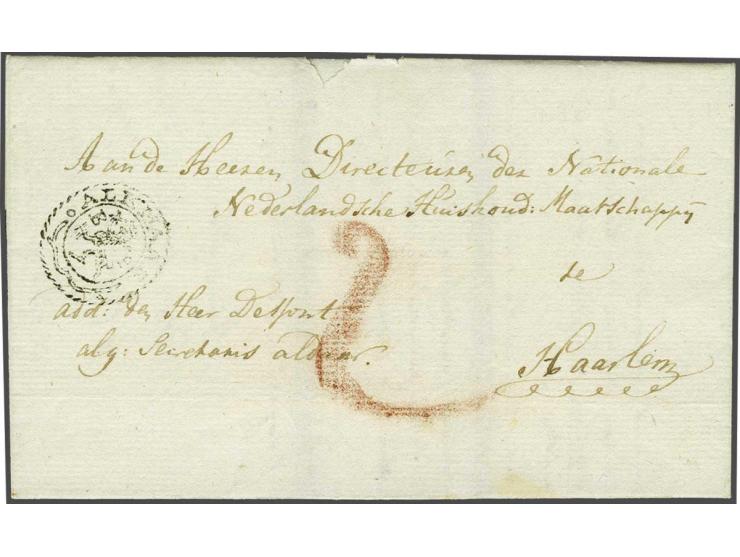 Aan de Heeren Directeuren der Nationale
Nederlandsche Huishoud: Maatschappij
ALKMAAR
3 St
te
add: den Heer Delfont
alg: Secretaris aldaar.
Haarlem
2